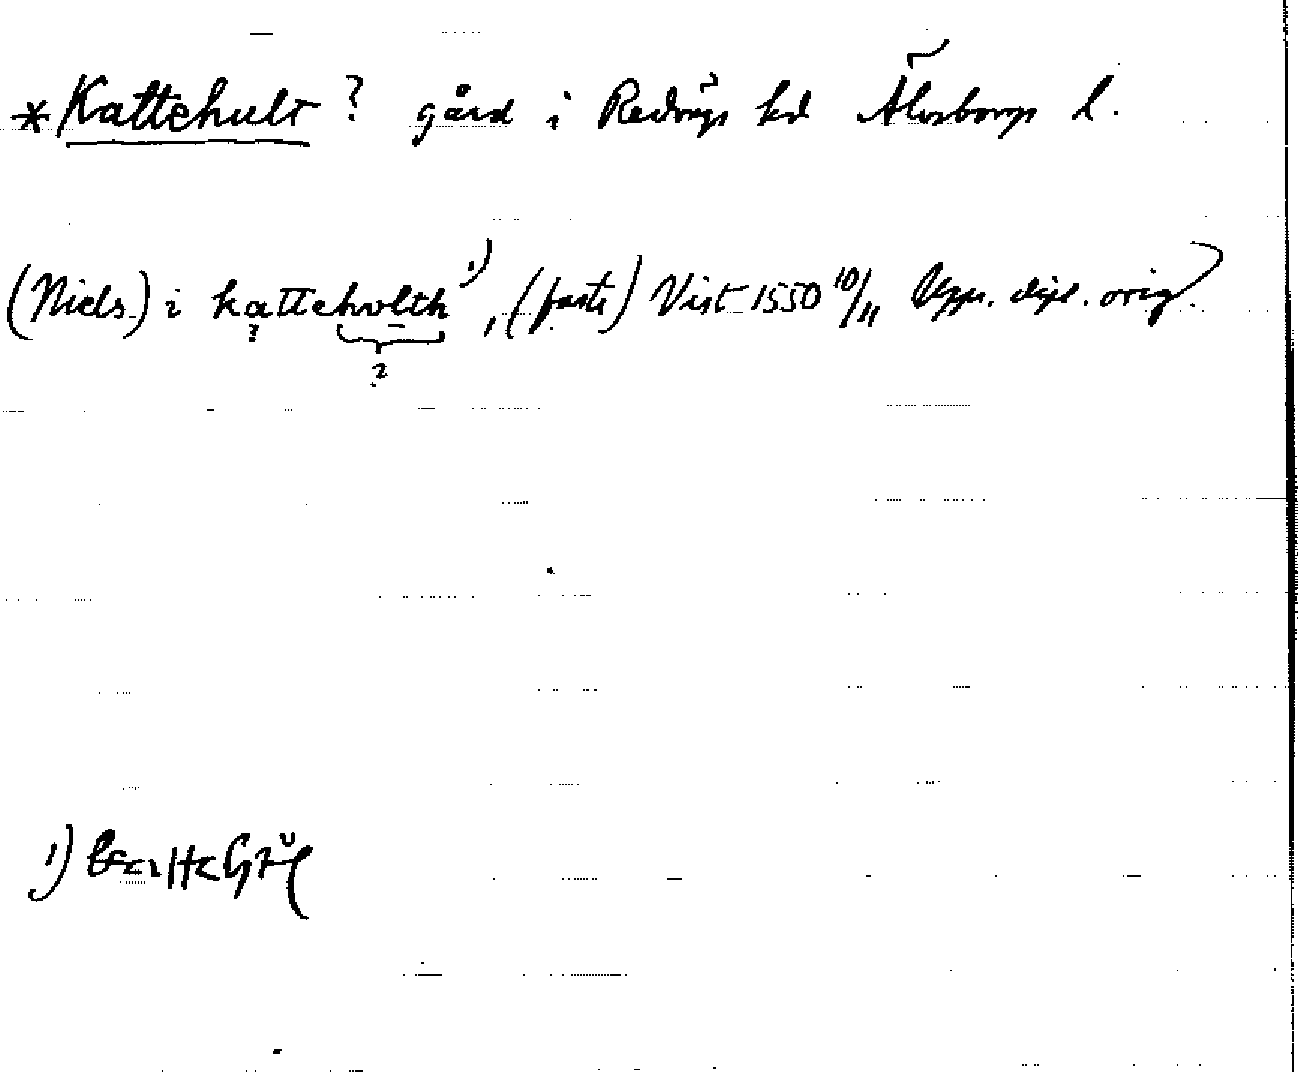 *Kattehult? gård i Redvägs hd Älvsborgs l.
(Niels) i katteholth ¹), (faste) Vist 1550 10/11 Upps. dipl. orig.
?
?
1)